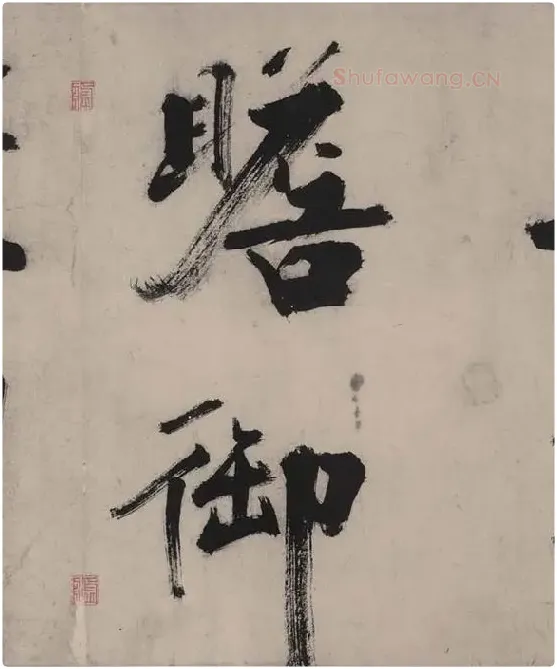 Shufawang.CN
瞻
御